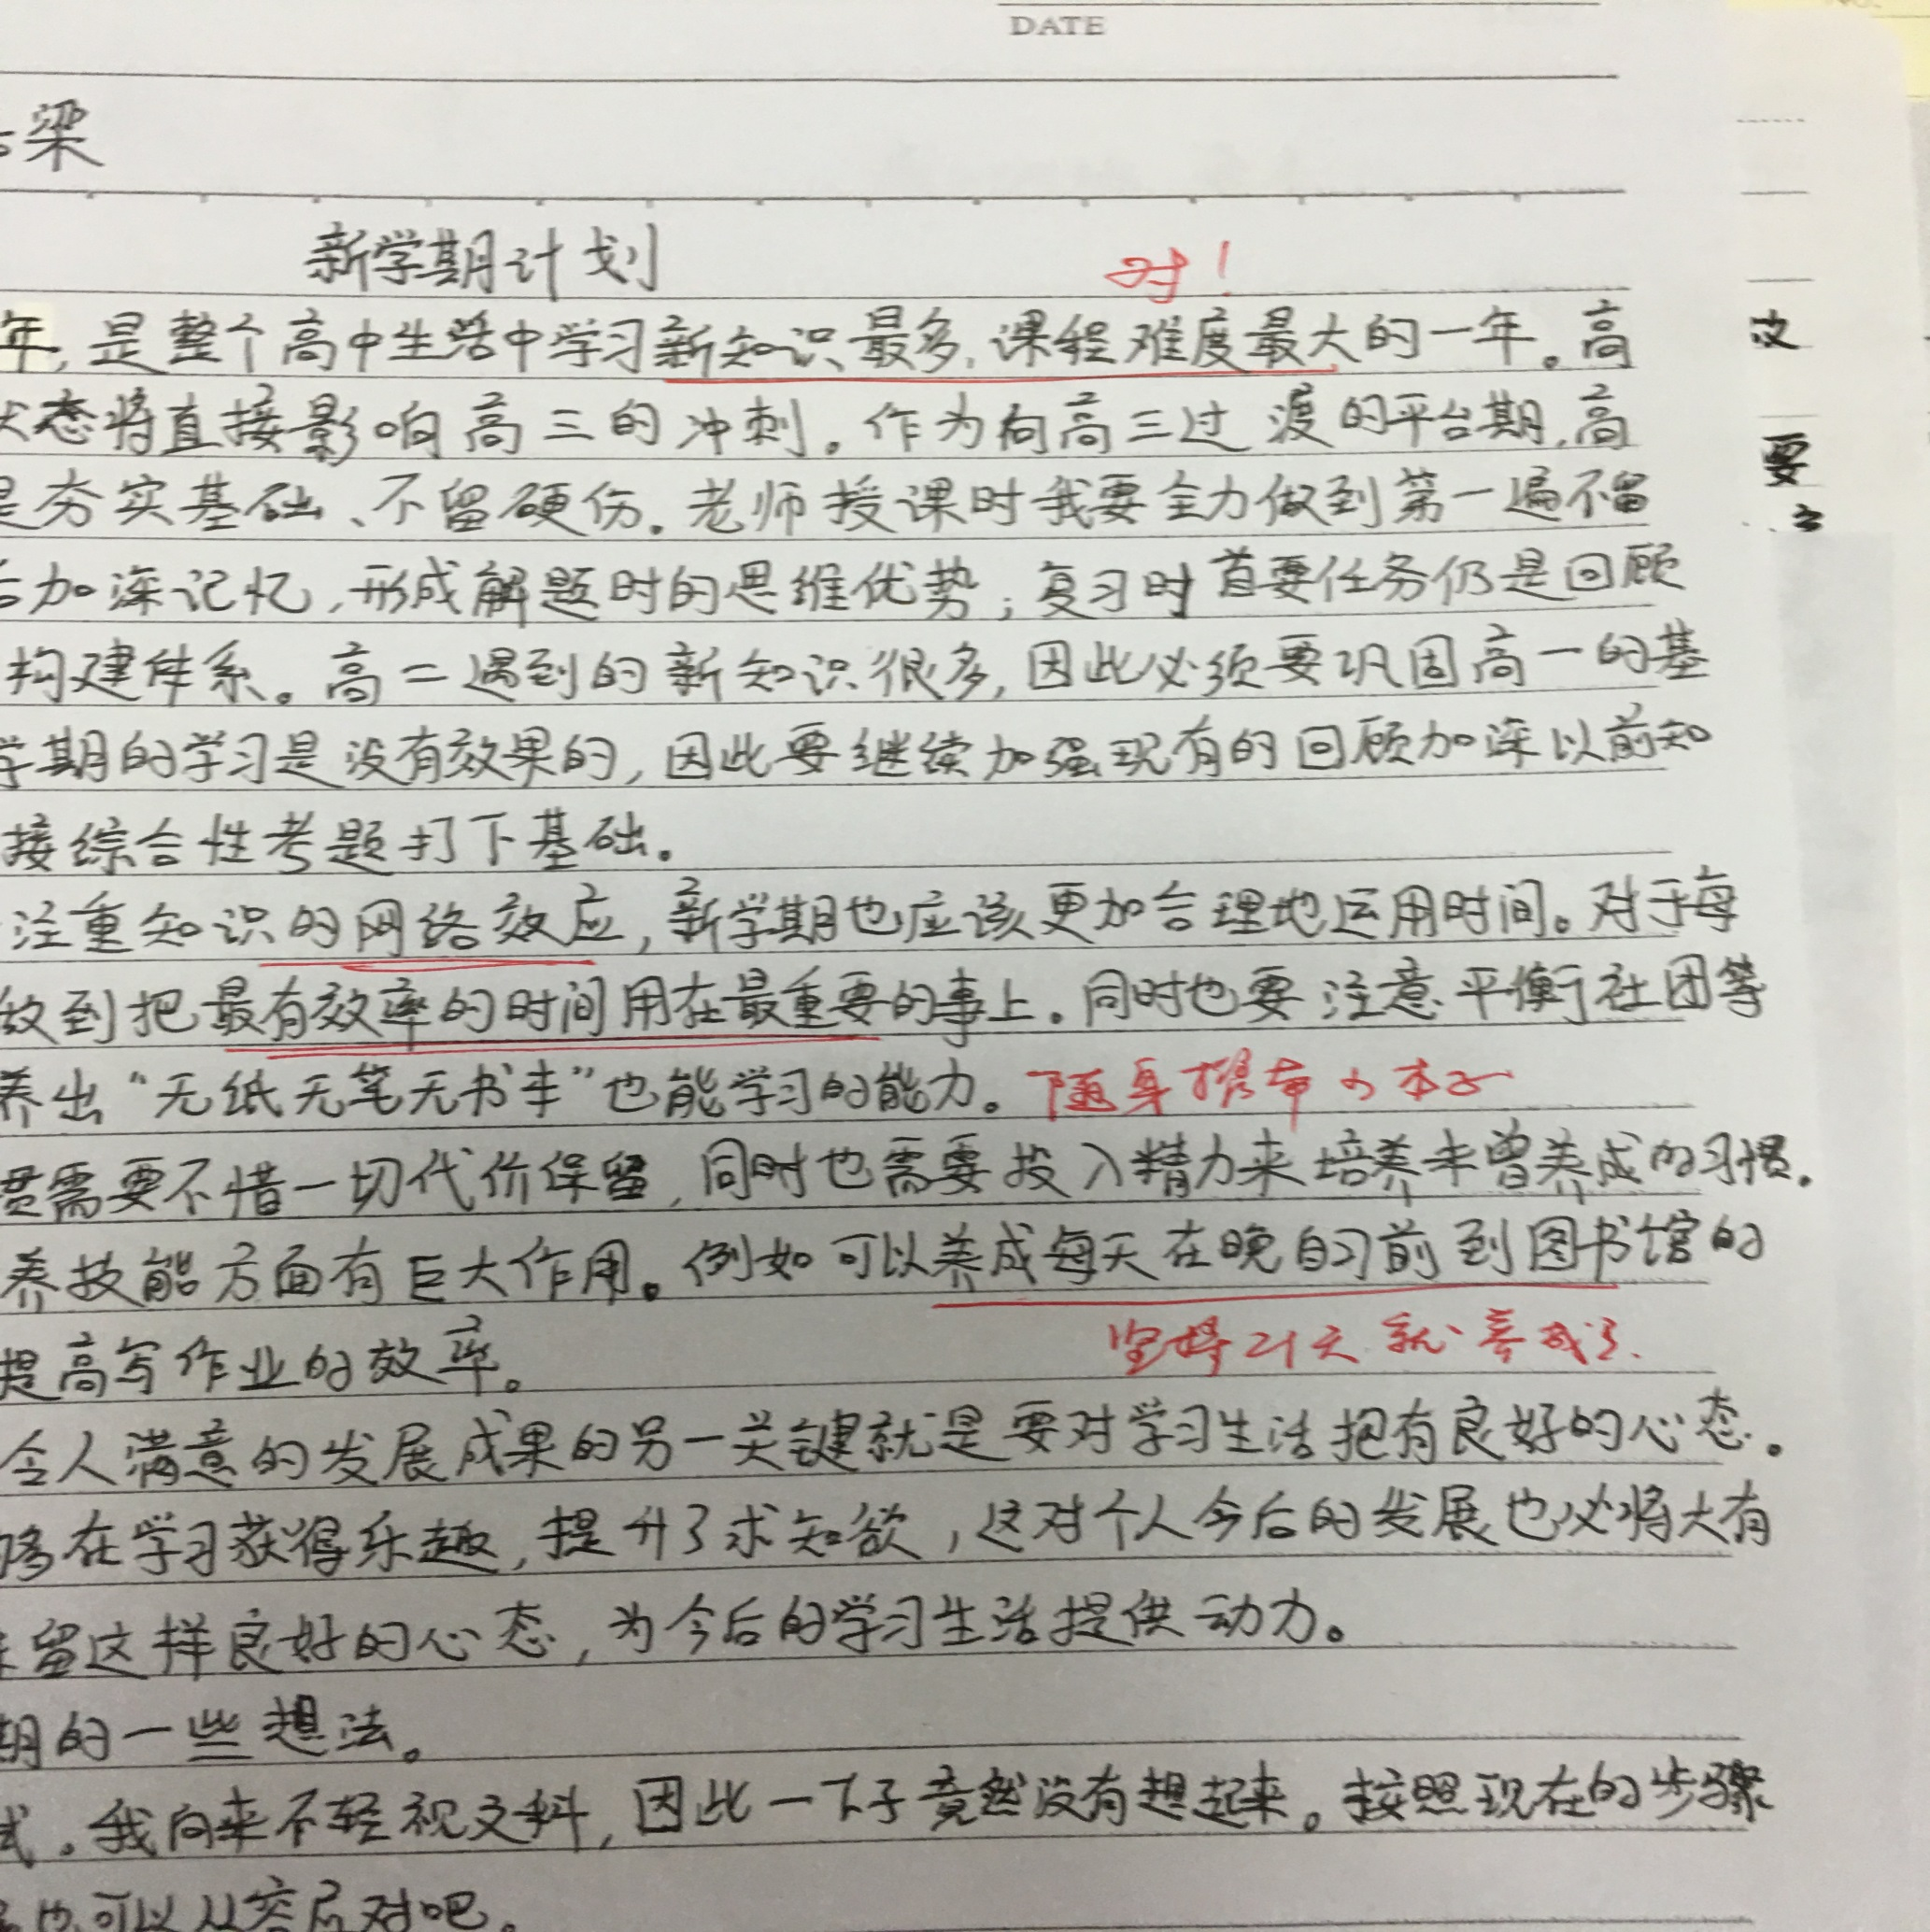 DATE
梁
新学期计划
对！
年，是整个高中生活中学习新知识最多，课程难度最大的一年。高
状态将直接影响高三的冲刺。作为向高三过渡的平台期，高
是夯实基础、不留硬伤。老师授课时我要全力做到第一遍不留
后加深记忆，形成解题时的思维优势；复习时首要任务仍是回顾
构建体系。高二遇到的新知识很多，因此必须要巩固高一的基
学期的学习是没有效果的，因此要继续加强现有的回顾加深以前知
接综合性考题打下基础。
注重知识的网络效应，新学期也应该更加合理地运用时间。对于每
做到把最有效率的时间用在最重要的事上。同时也要注意平衡社团等
养出“无纸无笔无书本”也能学习的能力。随身携带小本子
惯需要不惜一切代价保留，同时也需要投入精力来培养未曾养成的习惯。
养技能方面有巨大作用。例如可以养成每天在晚自习前到图书馆的
坚持21天就养成了.
提高写作业的效率。
令人满意的发展成果的另一关键就是要对学习生活抱有良好的心态。
够在学习获得乐趣，提升了求知欲，这对个人今后的发展也必将大有
保留这样良好的心态，为今后的学习生活提供动力。
期的一些想法。
试。我向来不轻视文科，因此一下子竟然没有想起来。按照现在的步骤
也可以从容应对吧。
要